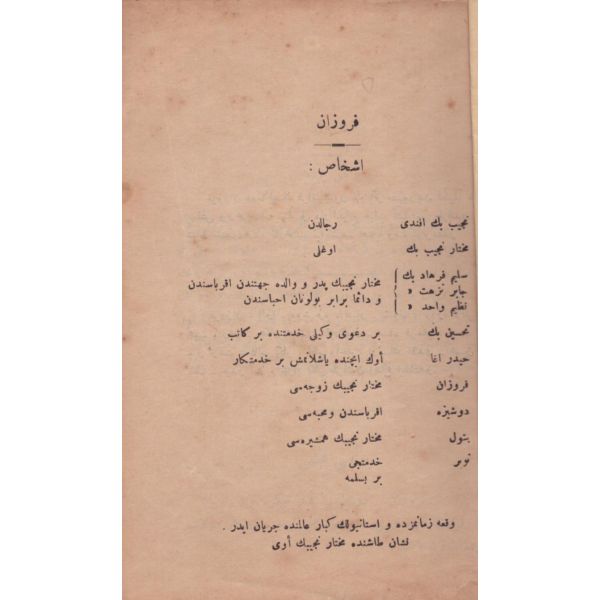 فروزان
اشخاص :
نجيب بك افندى رجالدن
مختار نجيب بك اوغلى
سليم فرهاد بك
جابر نزهت »
نظيم واحد »
مختار نجيبك پدر و والده جهتندن اقرباسندن
و دائما برابر بولونان احباسندن
تحسين بك بر دعوى وكيلى خدمتنده بر كاتب
حيدر اغا أوك ايچنده ياشلانمش بر خدمتكار
فروزان مختار نجيبك زوجه‌سى
دوشيزه اقرباسندن ومحبه‌سى
بتول مختار نجيبك همشيره‌سى
خدمتجى
بر بسلمه
وقعه زمانمزده و استانبولك كبار عالمنده جريان ايدر .
نشان طاشنده مختار نجيبك أوى